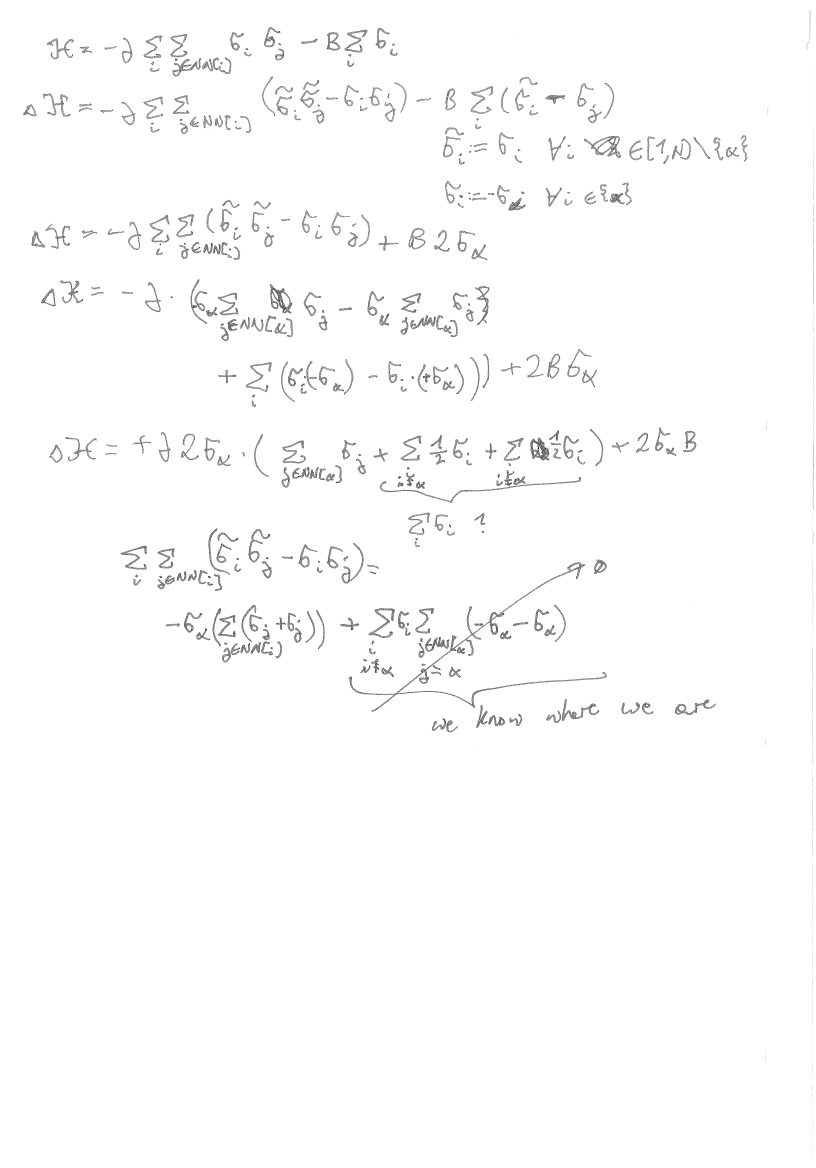 ℋ = -J Σ_i Σ_{j∈NN[i]} σ_i σ_j - B Σ_i σ_i
Δℋ = -J Σ_i Σ_{j∈NN[i]} (σ̃_i σ̃_j - σ_i σ_j) - B Σ_i (σ̃_i - σ_j)
σ̃_i := σ_i ∀i ∈[1,N)\{α}
σ̃_i := -σ_i ∀i ∈{α}
Δℋ = -J Σ_i Σ_{j∈NN[i]} (σ̃_i σ̃_j - σ_i σ_j) + B 2σ_α
Δℋ = -J · (σ_α Σ_{j∈NN[α]} σ_j - σ_α Σ_{j∈NN[α]} σ_j
+ Σ_i (σ_i(-σ_α) - σ_i·(+σ_α))) + 2Bσ_α
Δℋ = +J 2σ_α · ( Σ_{j∈NN[α]} σ_j + Σ_{i≠α} ½σ_i + Σ_{i≠α} ½σ_i ) + 2σ_α B
Σ_i σ_i ?
Σ_i Σ_{j∈NN[i]} (σ̃_i σ̃_j - σ_i σ_j) =
→ 0
-σ_α (Σ_{j∈NN[i]} (σ_j + σ_j)) + Σ_{i≠α} σ_i Σ_{j∈NN[α] j=α} (-σ_α - σ_α)
we know where we are